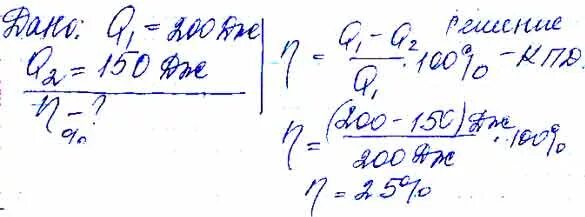 Дано:
Q₁ = 200 Дж
Q₂ = 150 Дж
η - ?
%
Решение
η = (Q₁ - Q₂)/Q₁ · 100% - КПД
η = (200 - 150) Дж / 200 Дж · 100%
η = 25%